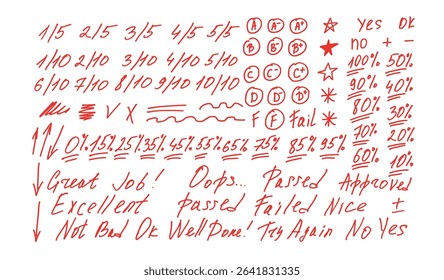 1/5 2/5 3/5 4/5 5/5 A A- A+ yes OK
1/10 2/10 3/10 4/10 5/10 B B- B+ no + -
6/10 7/10 8/10 9/10 10/10 C C- C+ 100% 50%
D D- D+ 90% 40%
V X F F Fail 80% 30%
0% 15% 25% 35% 45% 55% 65% 75% 85% 95% 70% 20%
60% 10%
Great Job! Oops... Passed Approved
Excellent passed Failed Nice ±
Not Bad Ok Well Done! Try Again No Yes
shutterstock
IMAGE ID: 2641831335
www.shutterstock.com